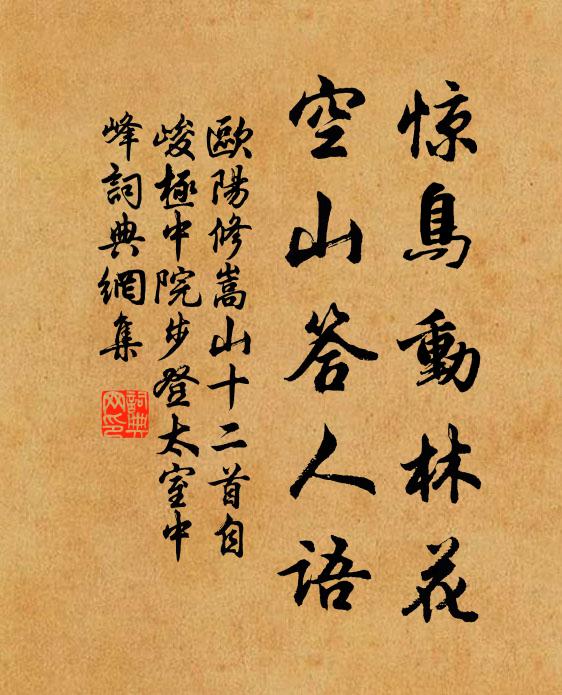 惊鳥動林花
空山答人语
歐陽修嵩山十二首自
峻極中院步登太室中
峰詞典網集
詞典
网印